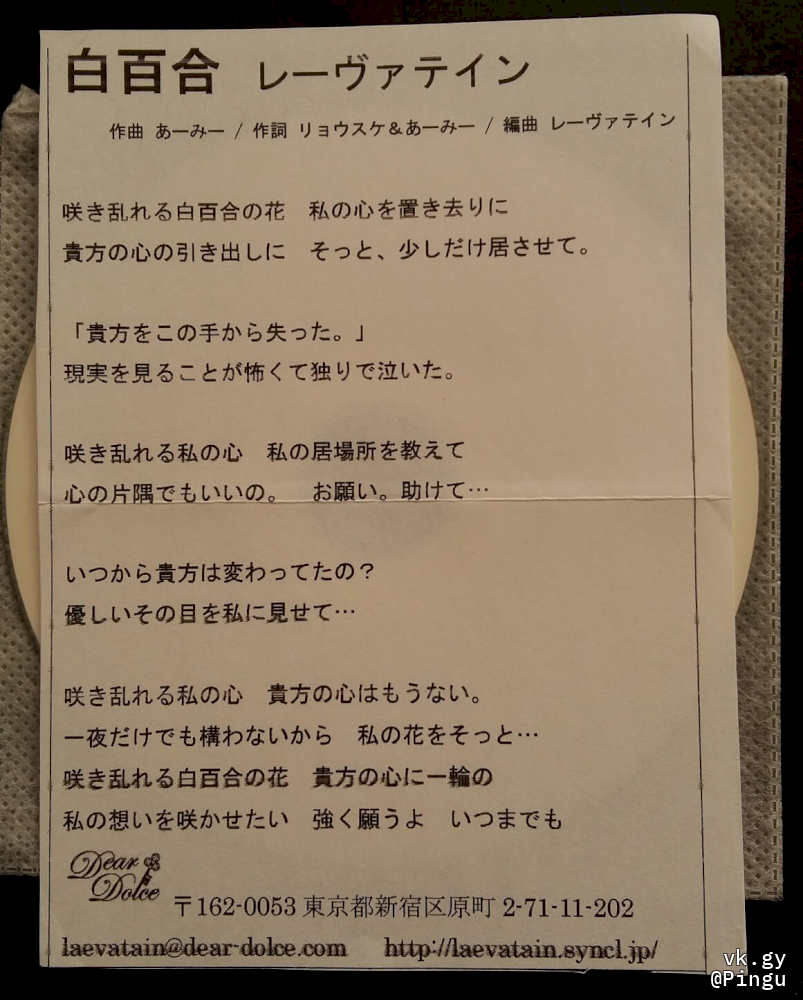 白百合 レーヴァテイン
作曲 あーみー / 作詞 リョウスケ&あーみー / 編曲 レーヴァテイン
咲き乱れる白百合の花　私の心を置き去りに
貴方の心の引き出しに　そっと、少しだけ居させて。
「貴方をこの手から失った。」
現実を見ることが怖くて独りで泣いた。
咲き乱れる私の心　私の居場所を教えて
心の片隅でもいいの。　お願い。助けて…
いつから貴方は変わってたの？
優しいその目を私に見せて…
咲き乱れる私の心　貴方の心はもうない。
一夜だけでも構わないから　私の花をそっと…
咲き乱れる白百合の花　貴方の心に一輪の
私の想いを咲かせたい　強く願うよ　いつまでも
Dear
Dolce
〒162-0053 東京都新宿区原町 2-71-11-202
laevatain@dear-dolce.com　http://laevatain.syncl.jp/
vk.gy
@Pingu